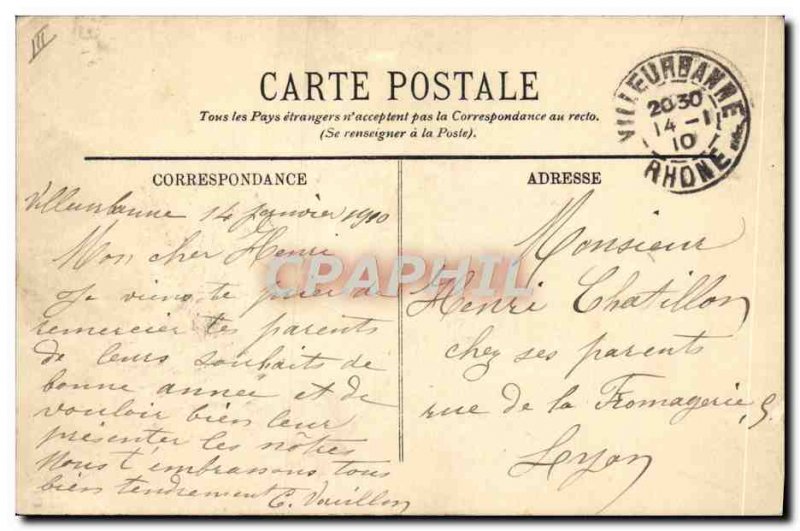 III
CARTE POSTALE
Tous les Pays étrangers n'acceptent pas la Correspondance au recto.
(Se renseigner à la Poste).
VILLEURBANNE
20 30
14 -1
10
RHONE
CORRESPONDANCE
Villeurbanne 14 janvier 1910
Mon cher Henri
Je viens te prier de
remercier tes parents
de leurs souhaits de
bonne année et de
vouloir bien leur
présenter les nôtres
Nous t'embrassons tous
bien tendrement C. Vouillon
ADRESSE
Monsieur
Henri Chatillon
chez ses parents
rue de la Fromagerie, 5
Lyon
CPAPHIL